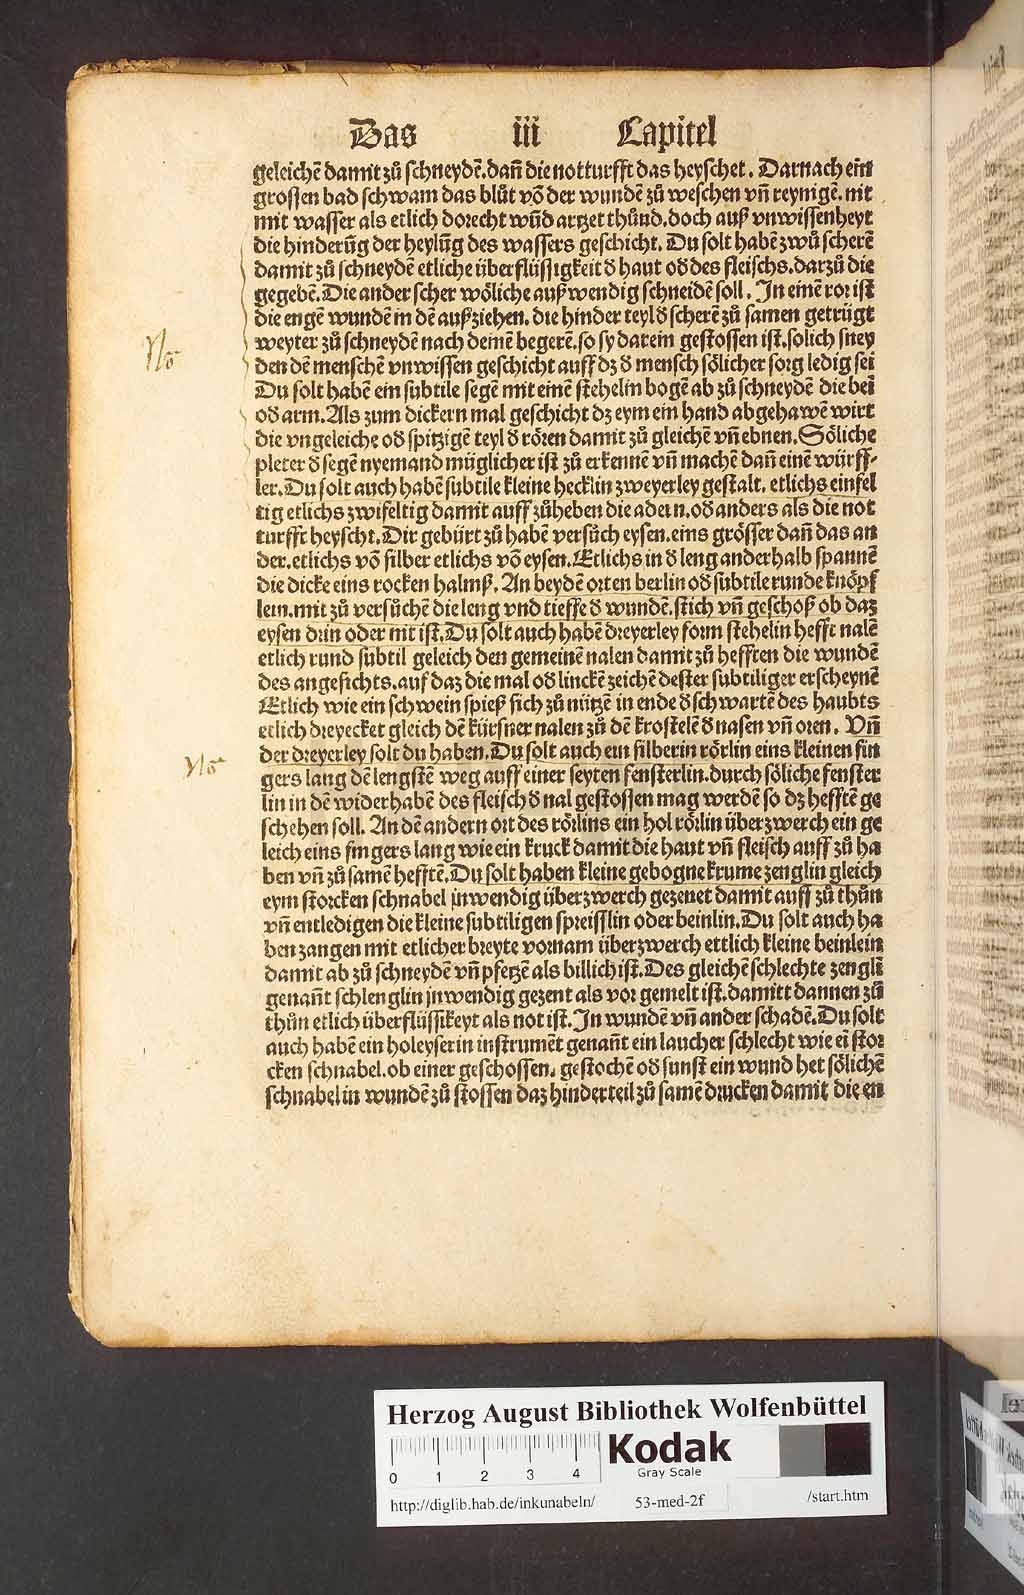 Das iii Capitel
geleichē damit zů schneydē. dañ die notturfft das heyschet. Darnach ein
grossen bad schwam das blůt vō der wundē zů weschen vñ reynigē. nit
mit wasser als etlich dorecht wūd artzet thůnd. doch auß vnwissenheyt
die hinderūg der heylūg des wassers geschicht. Du solt habē zwů scherē
damit zů schneydē etliche überflüssigkeit d haut od des fleischs. darzů die
gegebē. Die ander scher wöliche außwendig schneidē soll. In einē ror ist
die engē wundē in dē außziehen. die hinder teyl d scherē zů samen getrügt
weyter zů schneydē nach deinē begerē. so sy darein gestossen ist. solich sney
den dē menschē vnwissen geschicht auff dz d mensch sölicher sorg ledig sei
Du solt habē ein subtile segē mit einē stehelin bogē ab zů schneydē die bei
od arm. Als zum dickern mal geschicht dz eym ein hand abgehawē wirt
die vngeleiche od spitzigē teyl d rören damit zů gleichē vñ ebnen. Söliche
pleter d segē nyemand müglicher ist zů erkennē vñ machē dañ einē würff-
ler. Du solt auch habē subtile kleine hecklin zweyerley gestalt. etlichs einfel
tig etlichs zwifeltig damit auff zůheben die adern. od anders als die not
turfft heyscht. Dir gebürt zů habē versůch eysen. eins grösser dañ das an
der. etlichs vō silber etlichs vō eysen. Etlichs in d leng anderhalb spannē
die dicke eins rocken halmß. An beydē orten berlin od subtile runde knöpf
lein. mit zů versůchē die leng vnd tieffe d wundē. stich vñ geschoß ob daz
eysen drin oder nit ist. Du solt auch habē dreyerley form stehelin hefft nalē
etlich rund subtil geleich den gemeinē nalen damit zů hefften die wundē
des angesichts. auf daz die mal od linckē zeichē dester subtiliger erscheynē
Etlich wie ein schwein spieß sich zů nützē in ende d schwartē des haubts
etlich dreyecket gleich dē kürsner nalen zů dē krostelē d nasen vñ oren. Vñ
der dreyerley solt du haben. Du solt auch ein silberin rörlin eins kleinen fin
gers lang dē lengstē weg auff einer seyten fensterlin. durch söliche fenster
lin in dē widerhabē des fleisch d nal gestossen mag werdē so dz hefftē ge
schehen soll. An dē andern ort des rörlins ein hol rörlin überzwerch ein ge
leich eins fingers lang wie ein kruck damit die haut vñ fleisch auff zů ha
ben vñ zů samē hefftē. Du solt haben kleine gebogne krume zenglin gleich
eym storcken schnabel jnwendig überzwerch gezenet damit auff zů thůn
vñ entledigen die kleine subtiligen spreisslin oder beinlin. Du solt auch ha
ben zangen mit etlicher breyte vornam überzwerch ettlich kleine beinlein
damit ab zů schneydē vñ pfetzē als billich ist. Des gleichē schlechte zenglī
genañt schlenglin jnwendig gezent als vor gemelt ist. damitt dannen zů
thůn etlich überflüssikeyt als not ist. In wundē vñ ander schadē. Du solt
auch habē ein holeyserin instrumēt genañt ein laucher schlecht wie eī stor
cken schnabel. ob einer geschossen. gestochē od sunst ein wund het sölichē
schnabel in wundē zů stossen daz hinderteil zů samē drucken damit die en
No
No
Herzog August Bibliothek Wolfenbüttel
0 1 2 3 4
Kodak
Gray Scale
http://diglib.hab.de/inkunabeln/ 53-med-2f /start.htm